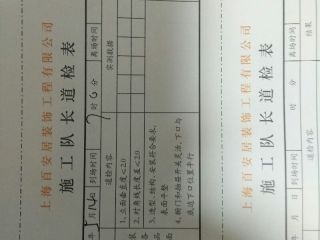 上海百安居装饰工程有限公司
施工队长道检表
年 月 到场时间 时 分 离场时间
道检内容 实测数据
1.立面垂直度≤2.0
2.对角线长度差≤2.0
3.造型、结构、安装符合要求,
表面平整
4.橱门和抽屉开关灵活,下口与
底边下口位置平行
上海百安居装饰工程有限公司
施工队长道检表
年 月 日 到场时间 时 分 离场时间
道检内容 结果